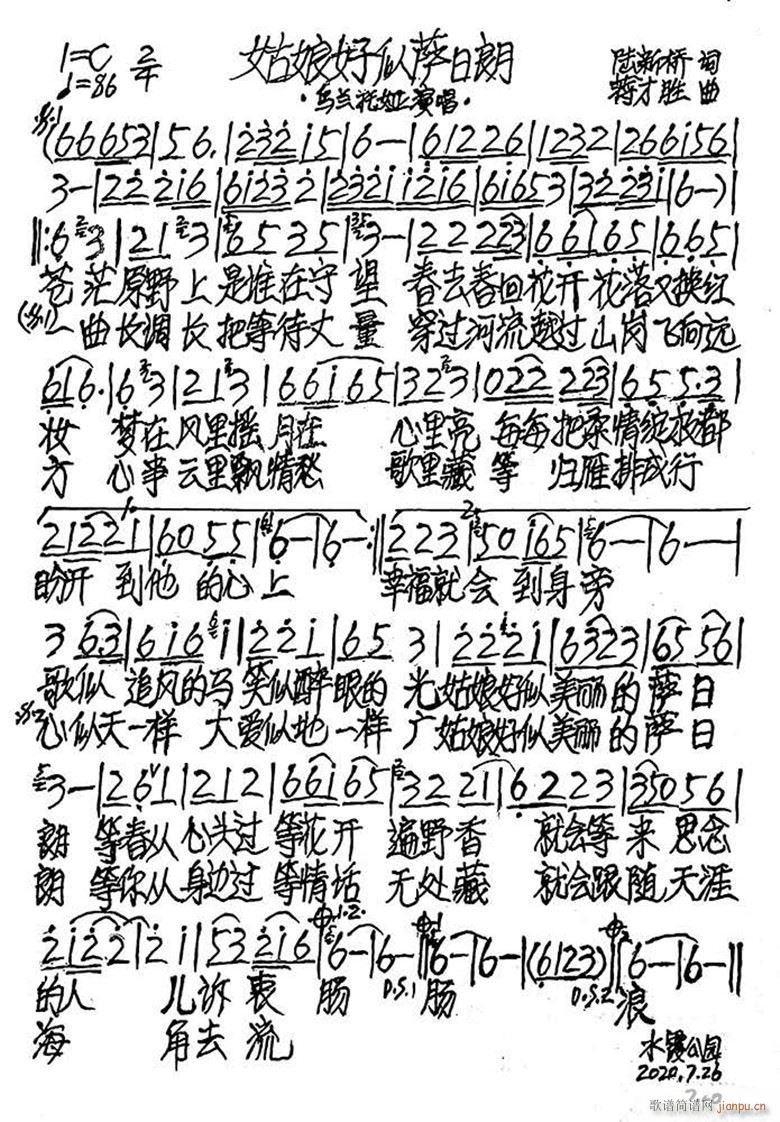 1=C 2/4 姑娘好似萨日朗 陆新桥 词
♩=86 ·乌兰托娅演唱· 蒋才胜 曲
(66653|56.|2321 5|6-|61226|1232|266156|
3-|222216|61232|2321 1216|61653|32231|6-)|
‖:63|213|6535|3-|22223|66165|665|
苍茫原野上是谁在守望 春去春回花开花落又换红
一曲长调长把等待丈量 穿过河流越过山岗飞向远
616.|63|213|66165|323|022 223|655.3|
妆 梦在风里摇月在 心里亮 每每把柔情绽放都
方 心事云里飘情愁 歌里藏 等 归雁排成行
1. 2.
21221|6055|6-|6-:‖223|50165|6-|6-|
盼开到他的心上 幸福就会到身旁
363|6161|221|653|2221|6323|6556|
歌似追风的马笑似醉眼的光姑娘好似美丽的萨日
心似天一样大爱似地一样广姑娘好似美丽的萨日
3-|261|212|66165|32 21|6223|35056|
朗 等春从心头过等花开遍野香 就会等来思念
朗 等你从身边过等情话无处藏 就会跟随天涯
21221|21|53216|6-|6-‖6-|6-|(6123)‖6-|6-‖
的人 儿诉衷肠 D.S.1 肠 D.S.2 浪
海 角去流
水霞公园
2020.7.26
歌谱简谱网
jianpu.cn